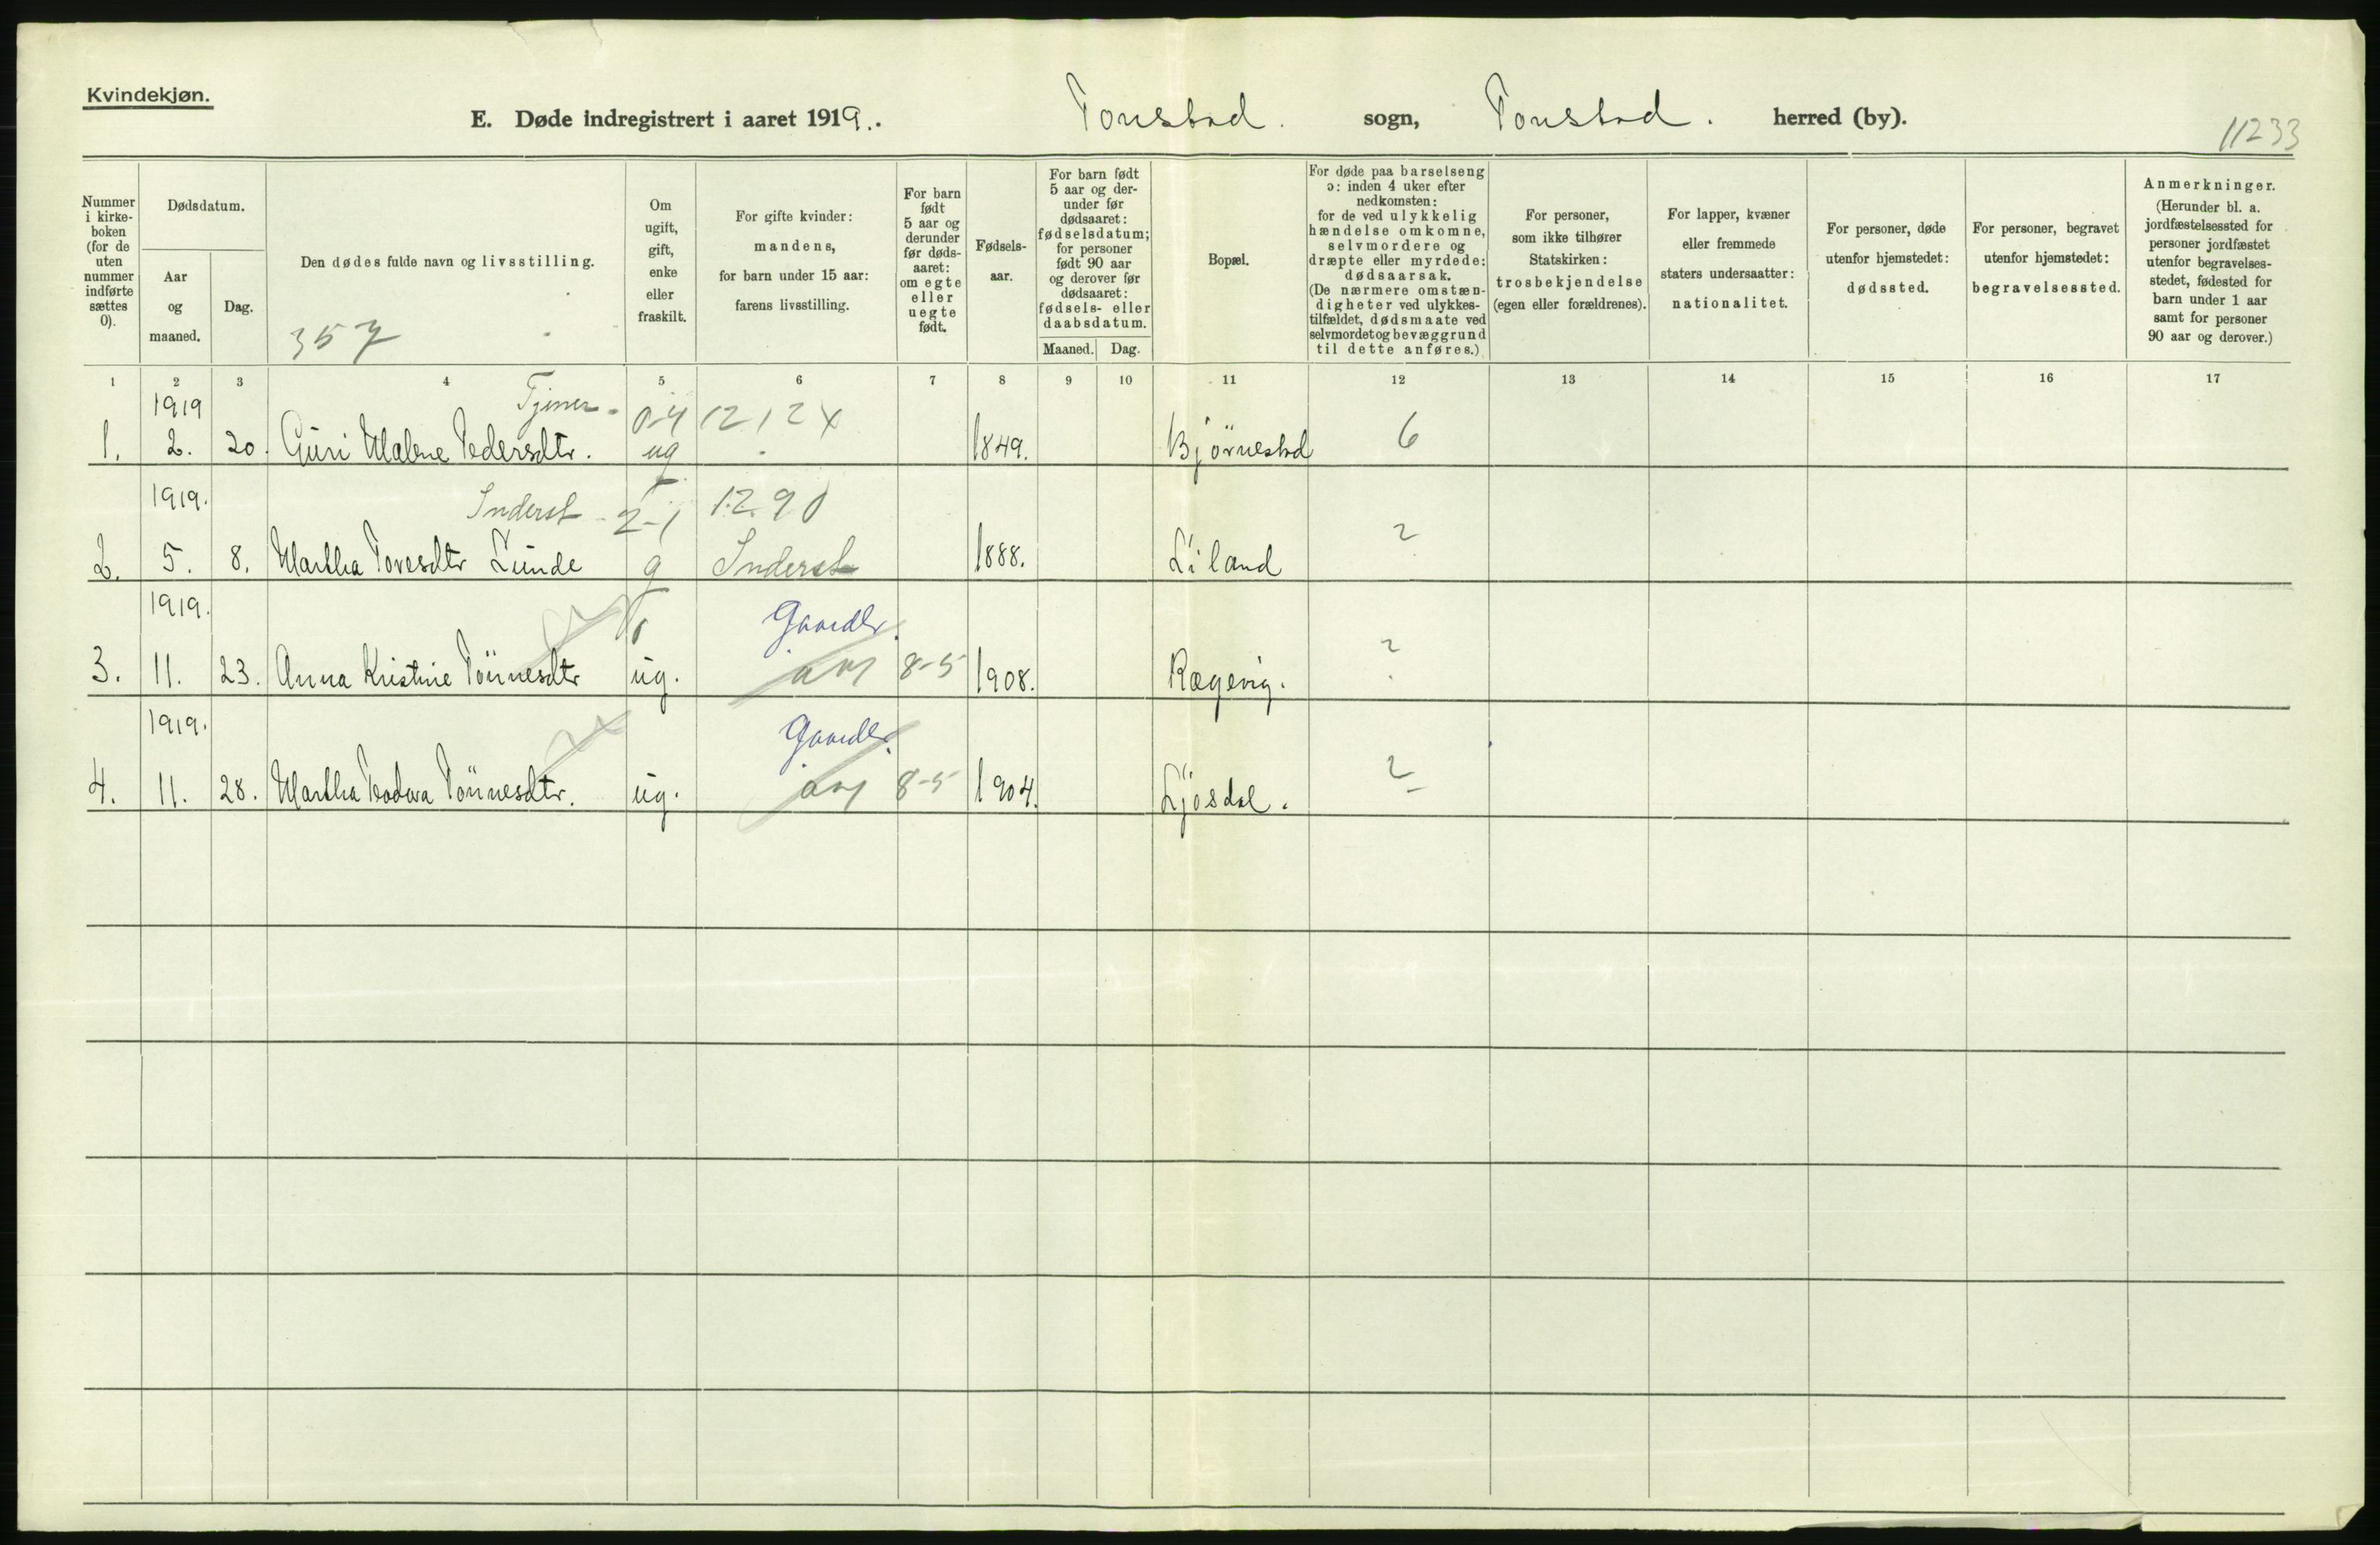 Kvindekjøn.
E. Døde indregistrert i aaret 1919. Tonstad. sogn, Tonstad. herred (by).
11233
Nummer i kirke-boken (for de uten nummer indførte sættes 0).
Dødsdatum.
Aar og maaned.
Dag.
Den dødes fulde navn og livsstilling.
357
Om ugift, gift, enke eller fraskilt.
For gifte kvinder: mandens, for barn under 15 aar: farens livsstilling.
For barn født 5 aar og derunder før døds-aaret: om egte eller uegte født.
Fødsels-aar.
For barn født 5 aar og der-under før dødsaaret: fødselsdatum; for personer født 90 aar og derover før dødsaaret: fødsels- eller daabsdatum.
Maaned. Dag.
Bopæl.
For døde paa barselseng ɔ: inden 4 uker efter nedkomsten: for de ved ulykkelig hændelse omkomne, selvmordere og dræpte eller myrdede: dødsaarsak. (De nærmere omstæn-digheter ved ulykkes-tilfældet, dødsmaate ved selvmordet og bevæggrund til dette anføres.)
For personer, som ikke tilhører Statskirken: trosbekjendelse (egen eller forældrenes).
For lapper, kvæner eller fremmede staters undersaatter: nationalitet.
For personer, døde utenfor hjemstedet: dødssted.
For personer, begravet utenfor hjemstedet: begravelsessted.
Anmerkninger. (Herunder bl. a. jordfæstelsessted for personer jordfæstet utenfor begravelses-stedet, fødested for barn under 1 aar samt for personer 90 aar og derover.)
1 2 3 4 5 6 7 8 9 10 11 12 13 14 15 16 17
1919 Tjener 0-4 12 12 X
1. 2. 20. Guri Malene Pedersdtr. ug 1849. Bjørnestad 6
1919. Inderst 2-1 12 90
2. 5. 8. Martha Tovesdtr Lunde g Inderst 1888. Liland 2
1919. Gaardbr.
3. 11. 23. Anna Kristine Tønnesdtr ug. 8-5 1908. Rægevig. 2
1919. Gaardbr.
4. 11. 28. Martha Teodora Tønnesdtr. ug. 8-5 1904. Ljosdal. 2